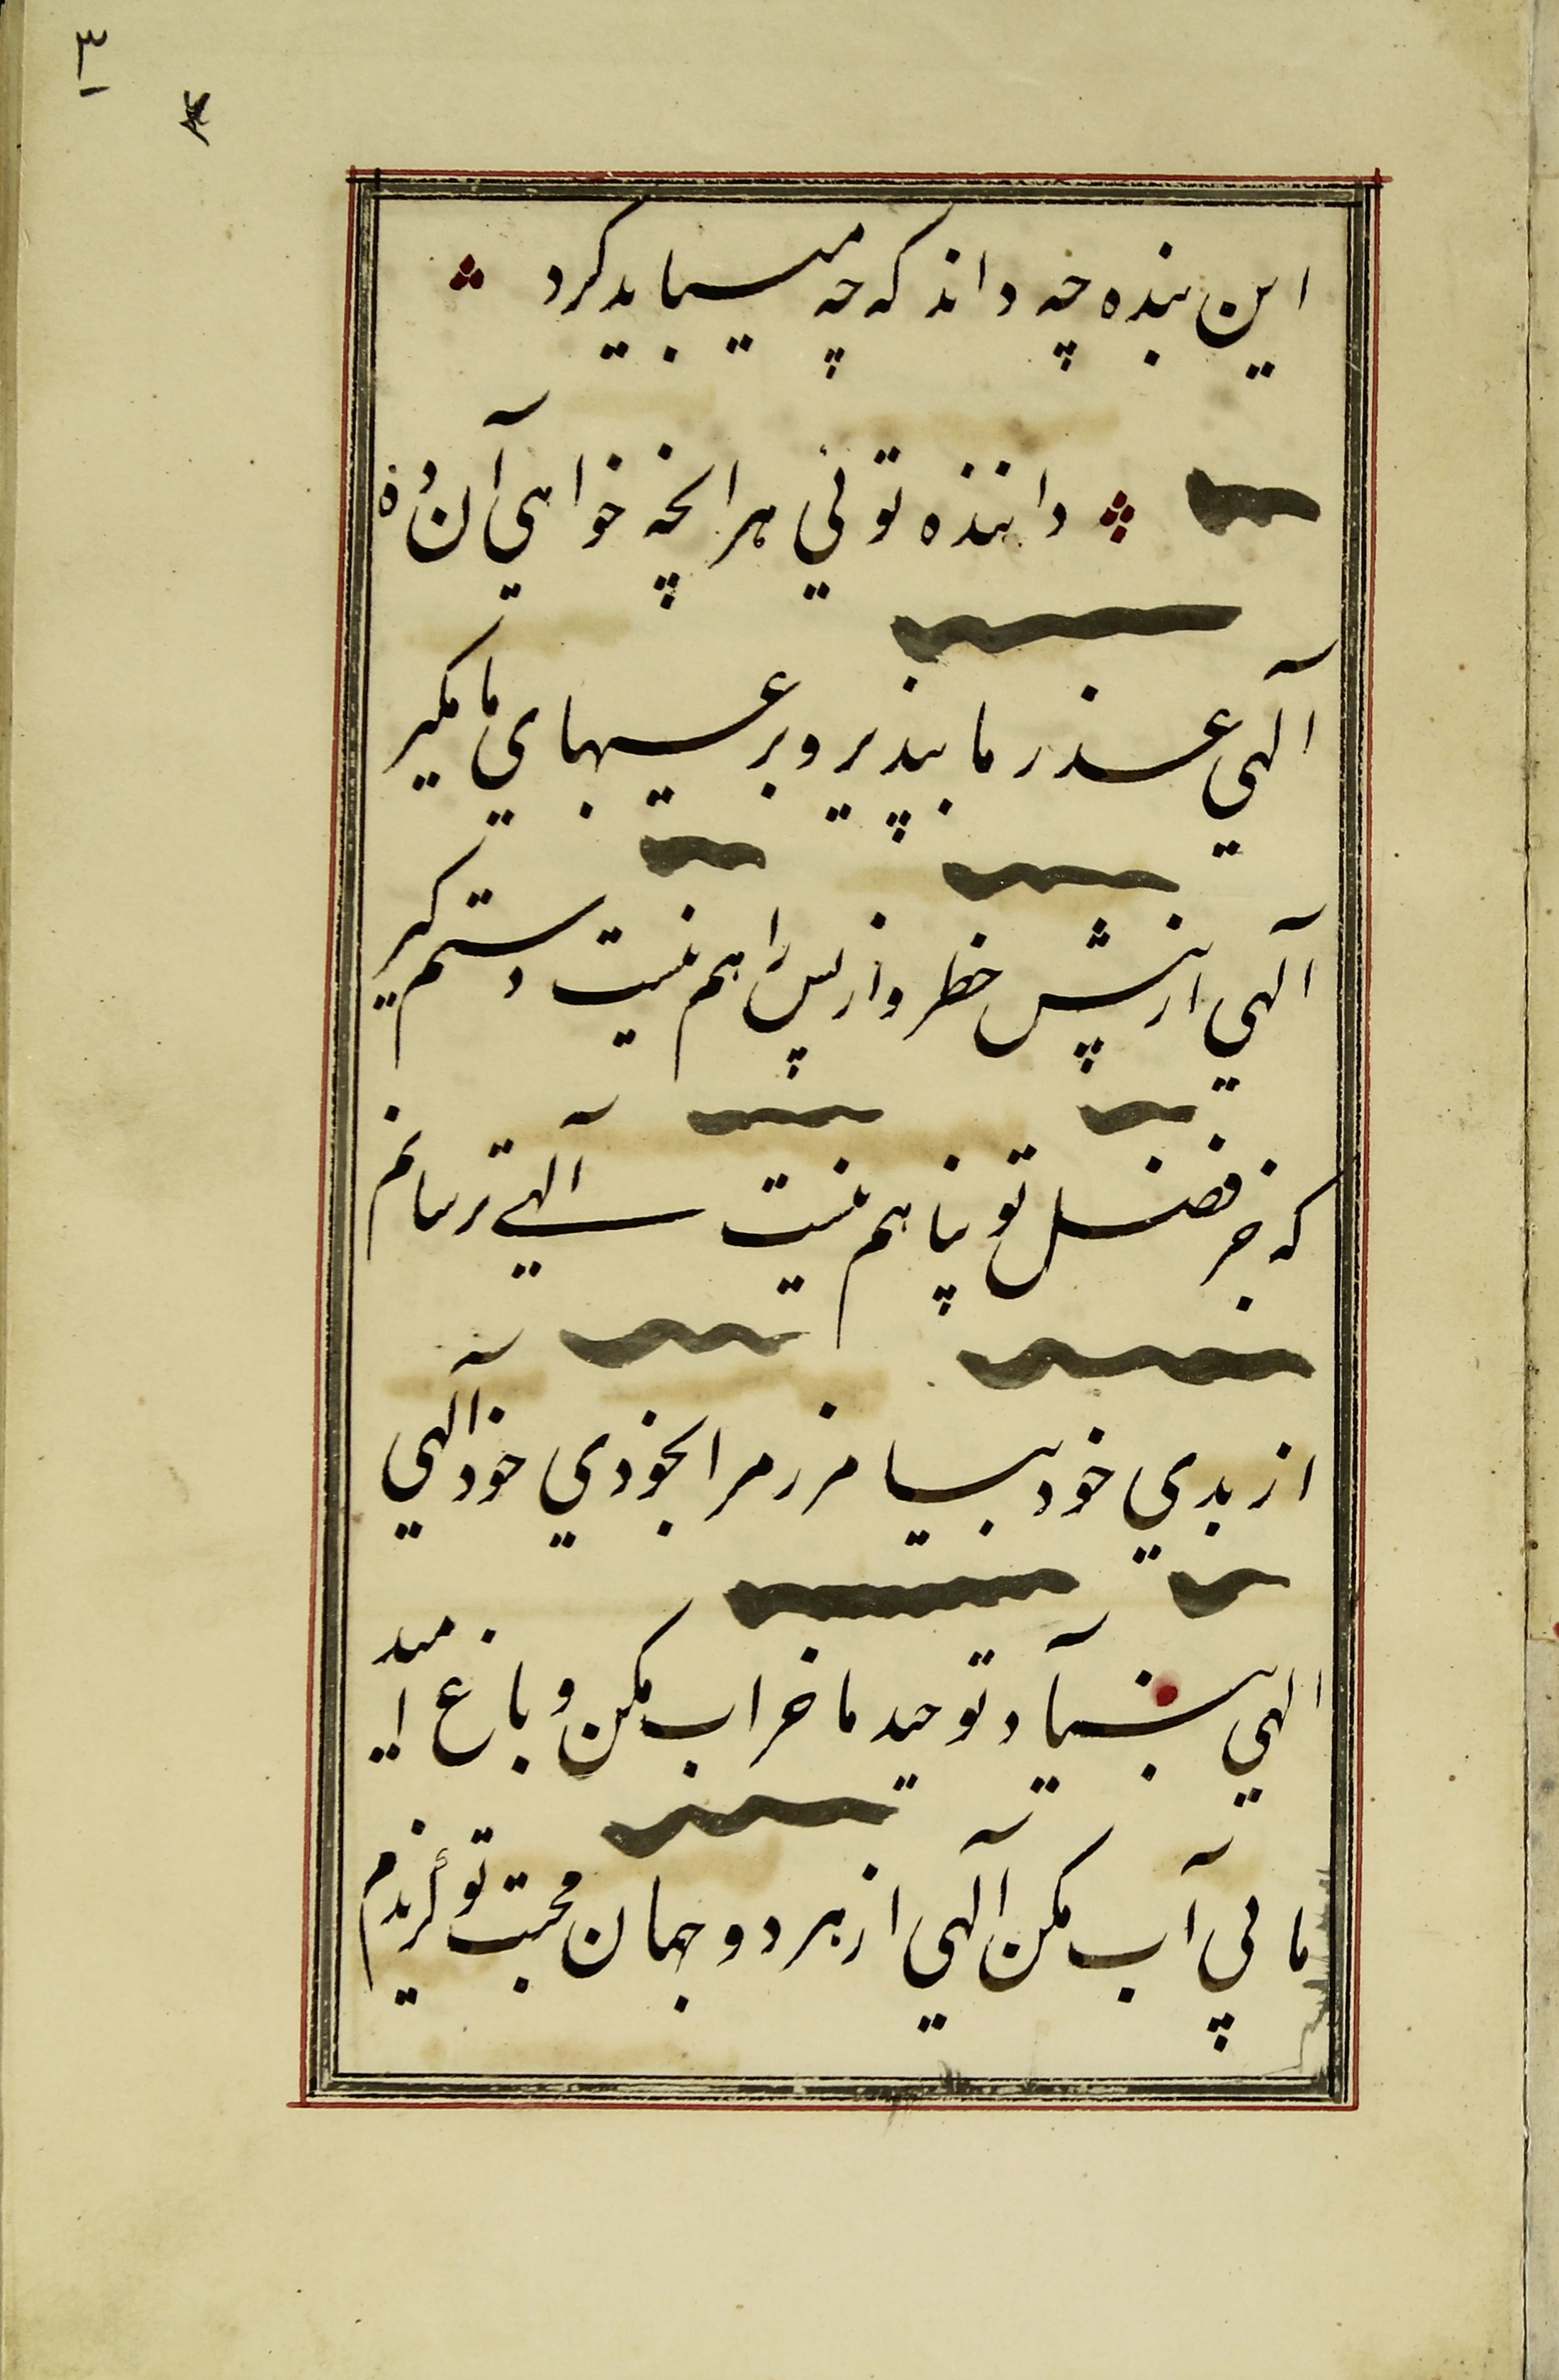 ٣
این بنده چه داند که چه میباید کرد
داننده توئي هر انچه خواهي آن ده
آلهي عذر ما بپذیر و بر عیبهاي ما مگیر
آلهي از پیش خطر و از پس راهم نیست دستم گیر
که جز فضل تو پناهم نیست آلهي ترسانم
از بدي خود بیامرز مرا بخودي خود آلهي
الهي بنیاد توحید ما خراب مکن و باغ امید
ما بي آب مکن آلهي از هر دو جهان محبت تو گزیدم